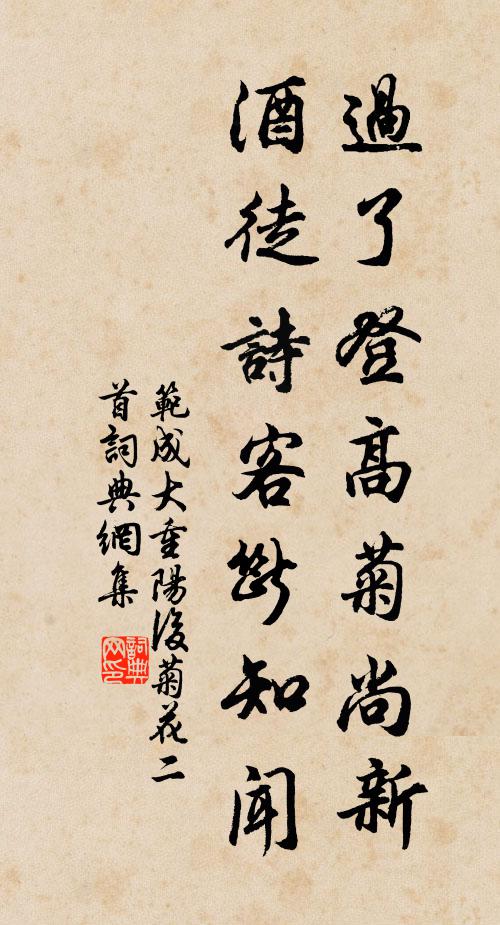 過了登高菊尚新
酒徒詩客斷知聞
範成大重陽後菊花二
首詞典網集
詞典
网印